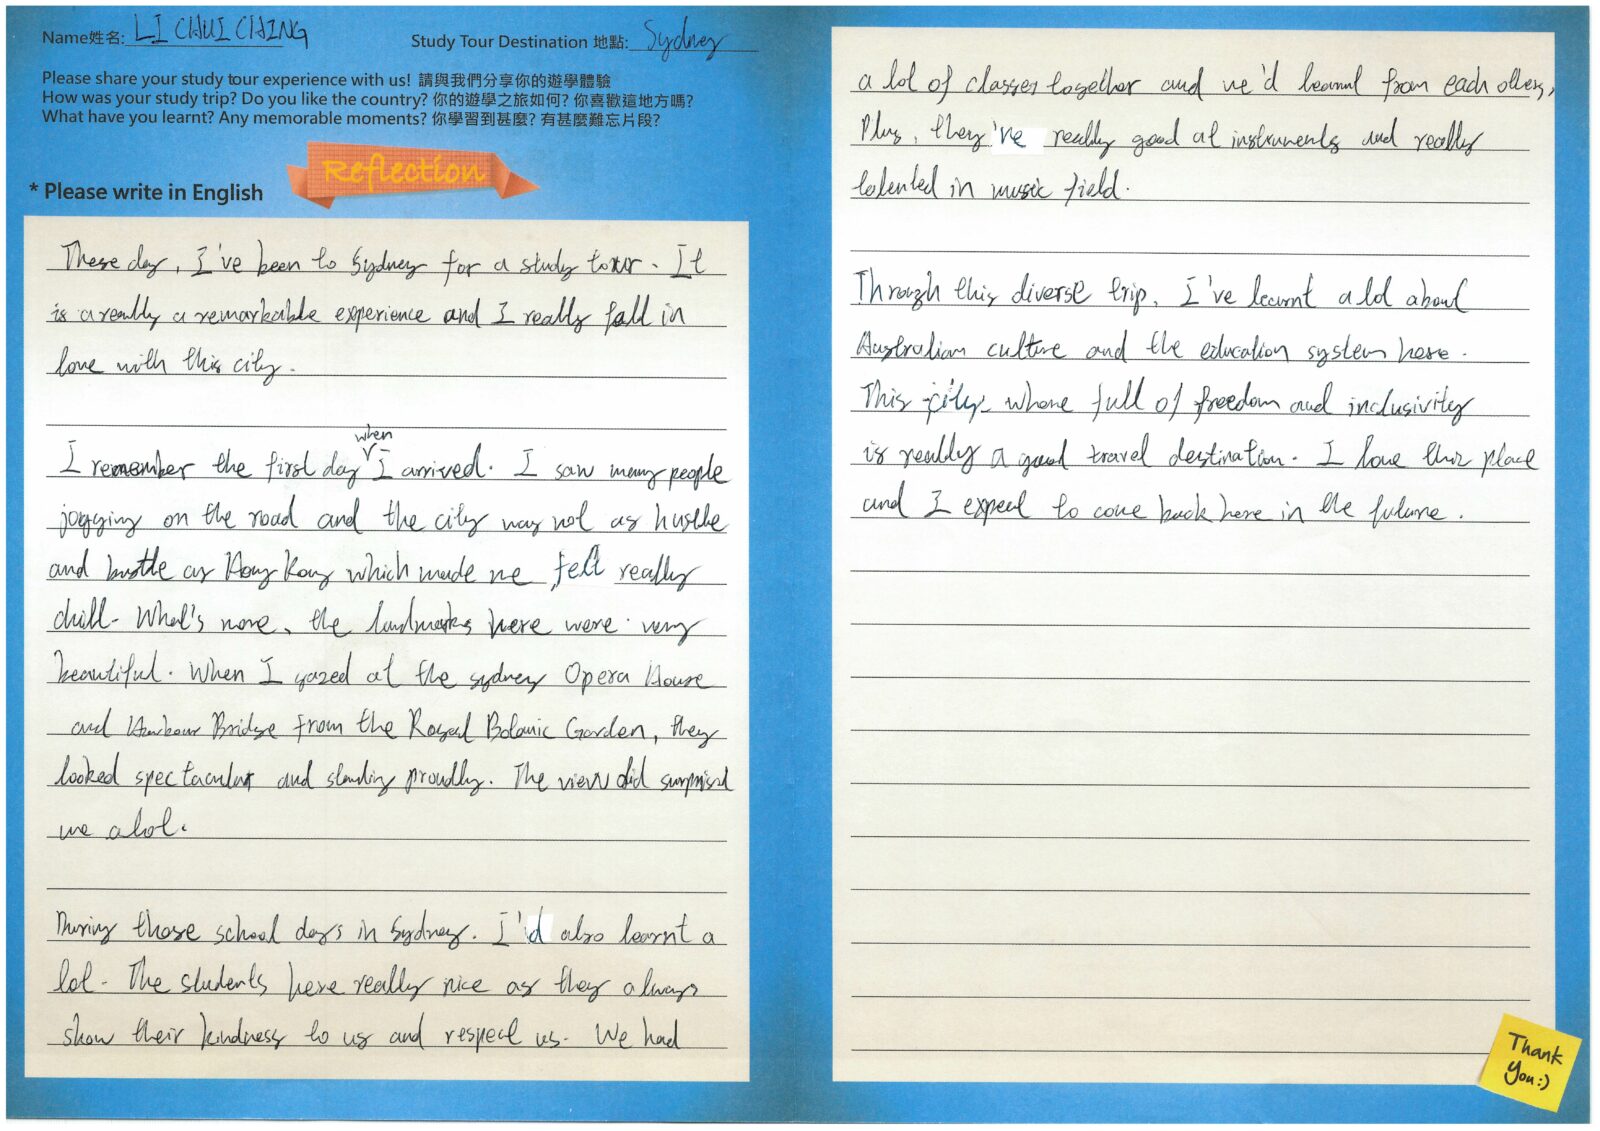 Name姓名: LI CHUI CHING
Study Tour Destination 地點: Sydney
Please share your study tour experience with us! 請與我們分享你的遊學體驗
How was your study trip? Do you like the country? 你的遊學之旅如何? 你喜歡這地方嗎?
What have you learnt? Any memorable moments? 你學習到甚麼? 有甚麼難忘片段?
Reflection
* Please write in English
These day, I've been to Sydney for a study tour. It
is a really a remarkable experience and I really fall in
love with this city.
I remember the first day when I arrived. I saw many people
jogging on the road and the city was not as hustle
and bustle as Hong Kong which made me fell really
chill. What's more, the landmarks here were very
beautiful. When I gazed at the sydney Opera House
and Harbour Bridge from the Royal Botanic Garden, they
looked spectacular and standing proudly. The view did surprised
me a lot.
During those school days in Sydney. I'd also learnt a
lot. The students here really nice as they always
show their kindness to us and respect us. We had
a lot of classes together and we'd learnt from each others,
Plus, they've really good at instruments and really
talented in music field.
Through this diverse trip, I've learnt a lot about
Australian culture and the education system here.
This city where full of freedom and inclusivity
is really a good travel destination. I love this place
and I expect to come back here in the future.
Thank
you:)